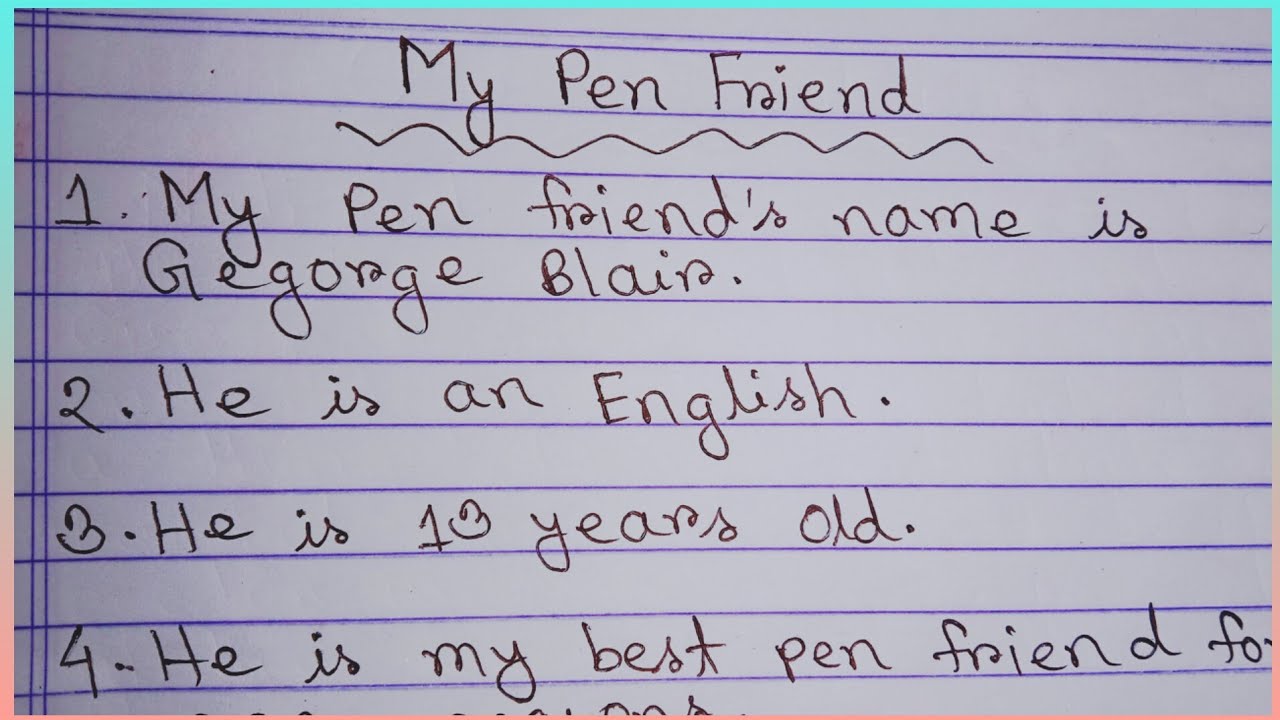 My Pen Friend
1. My Pen friend's name is
Gegorge Blair.
2. He is an English.
3. He is 13 years old.
4. He is my best pen friend for